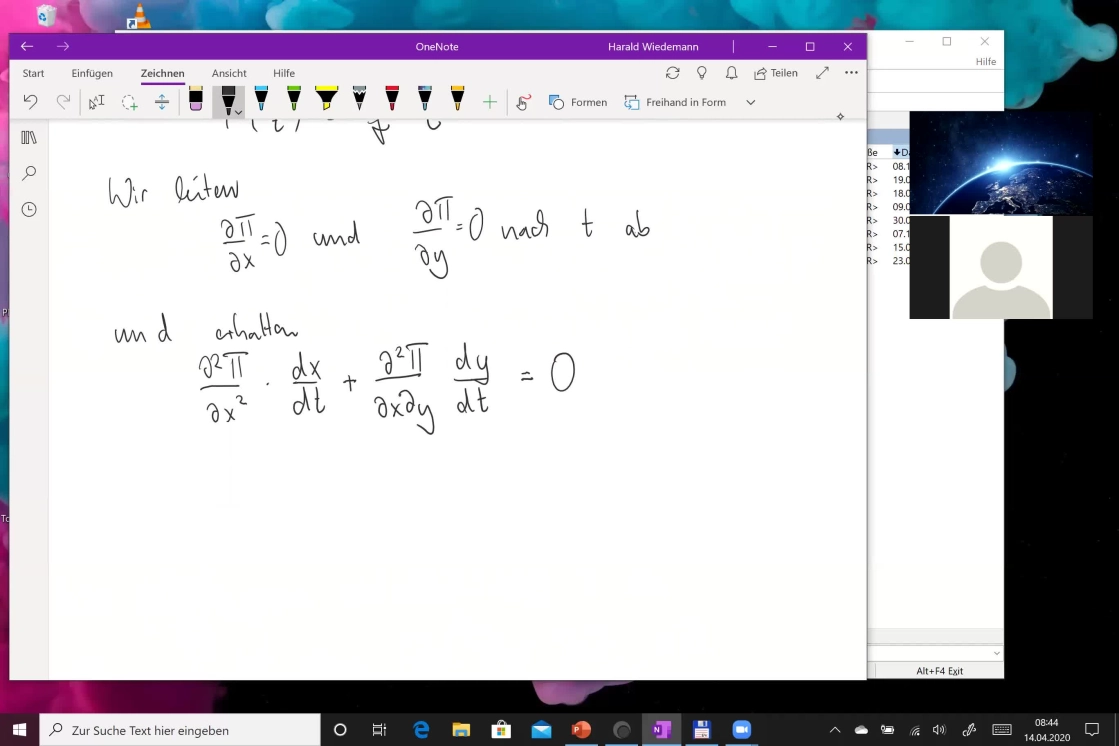 OneNote
Harald Wiedemann
Hilfe
Start Einfügen Zeichnen Ansicht Hilfe
Teilen
Formen
Freihand in Form
Wir leiten
∂Π/∂x = 0 und ∂Π/∂y = 0 nach t ab
und erhalten
∂²Π/∂x² · dx/dt + ∂²Π/∂x∂y dy/dt = 0
ße D
R> 08.1
R> 19.0
R> 18.0
R> 09.0
R> 30.0
R> 07.1
R> 15.0
R> 23.0
Alt+F4 Exit
Zur Suche Text hier eingeben
08:44
14.04.2020